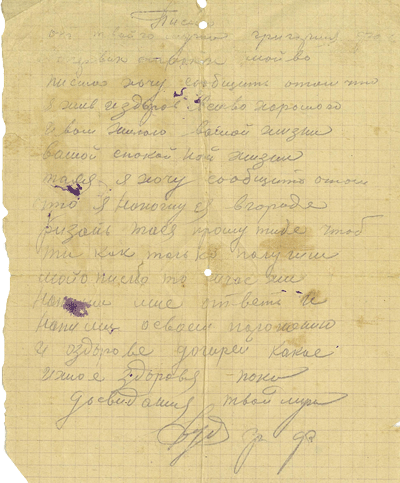 Письмо
от твоего мужа григория
в первых строках моево
письма хочу сообщить отом что
я жив издоров Всиво хорошово
и вам желаю вашой жизни
вашой спокойной жизни
тася я хочу сообщить отом
что я нахожуся вгораде
тася прошу тибе чтоб
ти как только получиш
моё писмо то
напиши мне ответ и
напиши освоем положению
и оздорове дочирей какое
ихное здоровя пока
досвидания твой муж
гр